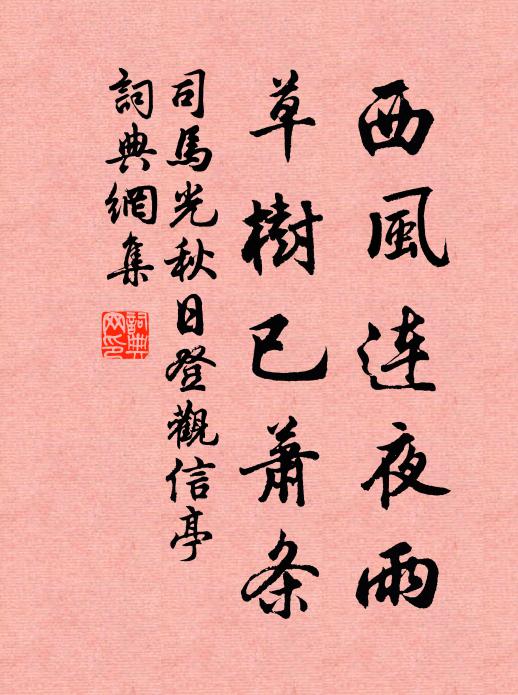 西風連夜雨
草樹已蕭条
司馬光秋日登觀信亭
詞典網集
詞典
网印